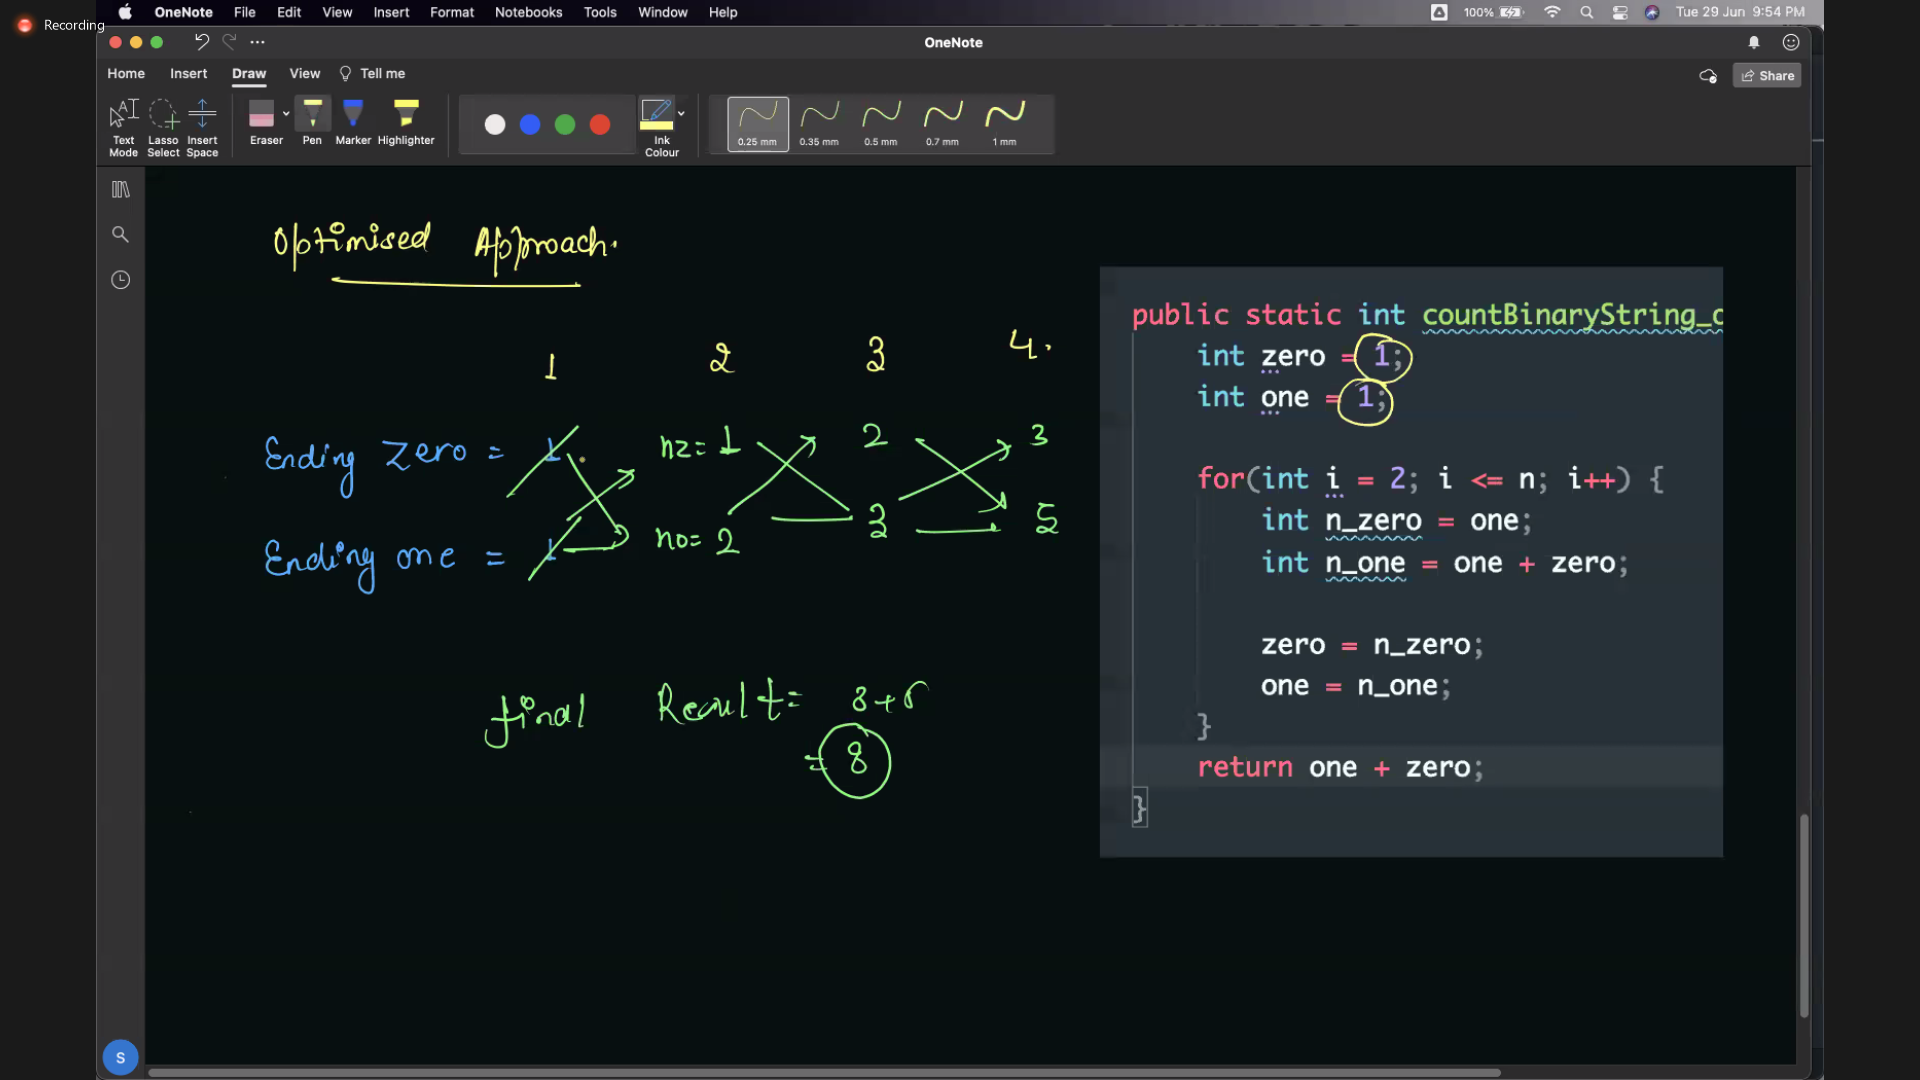 Recording
OneNote File Edit View Insert Format Notebooks Tools Window Help 100% Tue 29 Jun 9:54 PM
OneNote
Home Insert Draw View Tell me Share
Text Mode Lasso Select Insert Space Eraser Pen Marker Highlighter Ink Colour 0.25 mm 0.35 mm 0.5 mm 0.7 mm 1 mm
Optimised Approach.
1 2 3 4.
Ending Zero = 1 nz= 1 2 3
Ending one = 1 no= 2 3 5
final Result = 3+5
= 8
public static int countBinaryString_
int zero = 1;
int one = 1;
for(int i = 2; i <= n; i++) {
int n_zero = one;
int n_one = one + zero;
zero = n_zero;
one = n_one;
}
return one + zero;
}
S